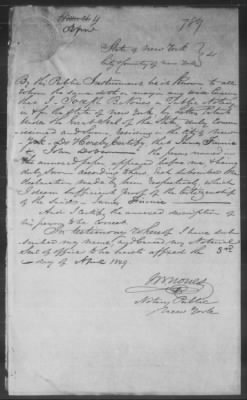 789
State of New York
City & County of New York
By this Public Instrument be it known to all
whom the same doth or may in any wise concern
that I Joseph B. Nones a Public Notary
in & for the State of New York by letters Patent
under the Great Seal of the State duly Com
missioned and sworn residing in the City of New
York. Do Hereby Certify that James
& John
the annexed paper appeared before me & being
duly sworn according to law deposed the
declaration made by them respectively, which
I deem sufficient proof of the Citizenship
of the said James
And I certify the annexed description of
his person to be correct
In testimony whereof I have sub
scribed my name and caused my Notarial
Seal of office to be hereto affixed the 3rd
day of April 1849.
J B Nones
Notary Public
New York